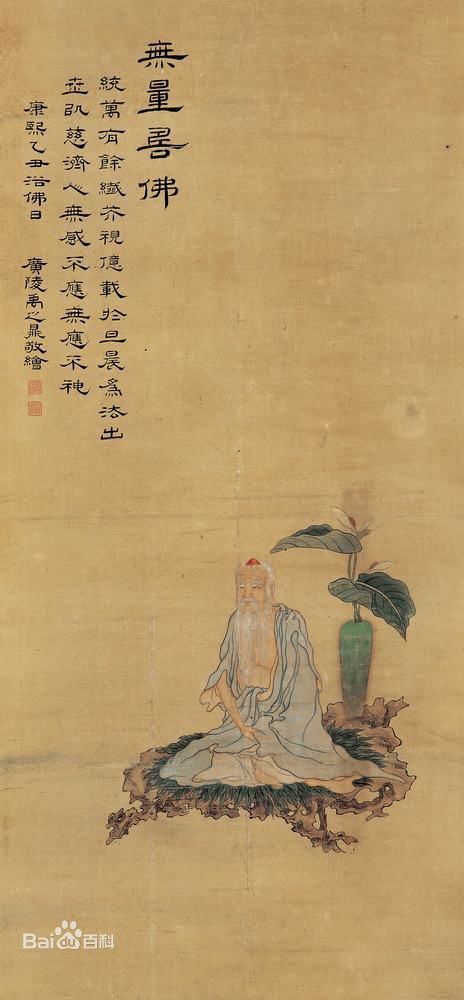 無量壽佛
統萬有餘纖芥視億載於旦晨為法出
世以慈濟心無感不應無應不神
康熙乙丑浴佛日 廣陵禹之鼎敬繪
Bai du 百科